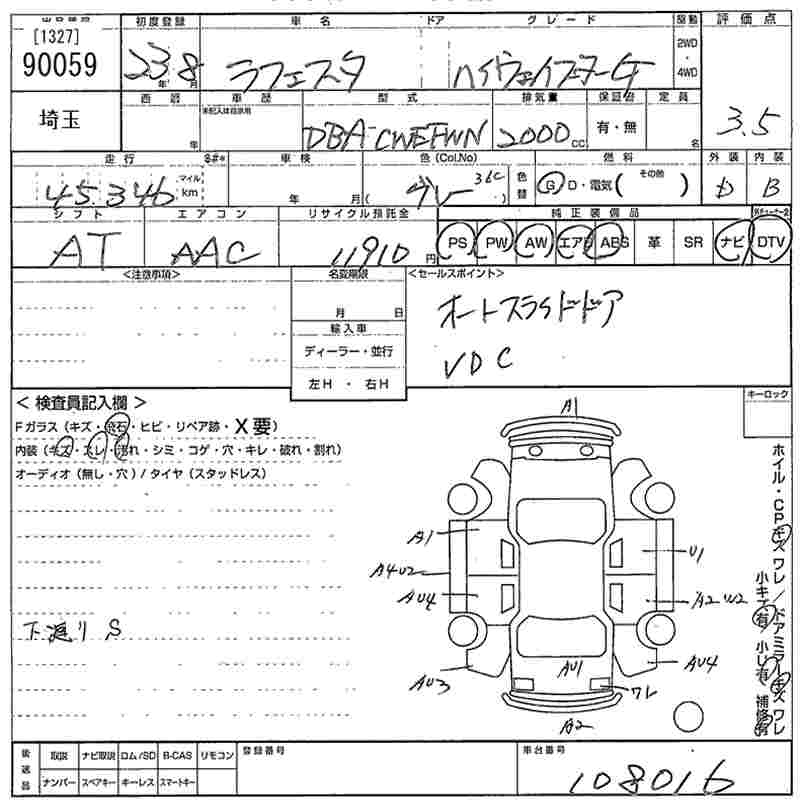 [1327]
90059
埼玉
初度登録
23年 8月
車名
ラフェスタ
ドア
グレード
ハイウェイスターG
駆動
2WD
・
4WD
評価点
3.5
西暦
年
車歴
型式
DBA-CWEFWN
排気量
2000cc
保証書
有・無
定員
名
走行
45,346
マイル
km
車検
年 月(
色(Col.No)
グレー 36C )
色替
燃料
G D・電気( その他 )
外装
D
内装
B
シフト
AT
エアコン
AAC
リサイクル預託金
11910円
純正装備品
PS PW AW エアB ABS 革 SR ナビ DTV
<注意事項>
名変期限
月 日
輸入車
ディーラー・並行
左H ・ 右H
<セールスポイント>
オートスライドドア
VDC
<検査員記入欄>
Fガラス(キズ・飛石・ヒビ・リペア跡・X要)
内装(キズ・スレ・汚れ・シミ・コゲ・穴・キレ・破れ・割れ)
オーディオ(無し・穴)/タイヤ(スタッドレス)
下廻りS
キーロック
A1
A1
U1
A4U2
AU4
A2 W2
AU3
AU1
AU4
ワレ
A2
ホイル・CPキズワレ/ドアミラーキズワレ
小キズ有 小U有 補修有
後送品
取説 ナビ取説 ロム/SD B-CAS リモコン
ナンバー スペアキー キーレス スマートキー
登録番号
車台番号
108016